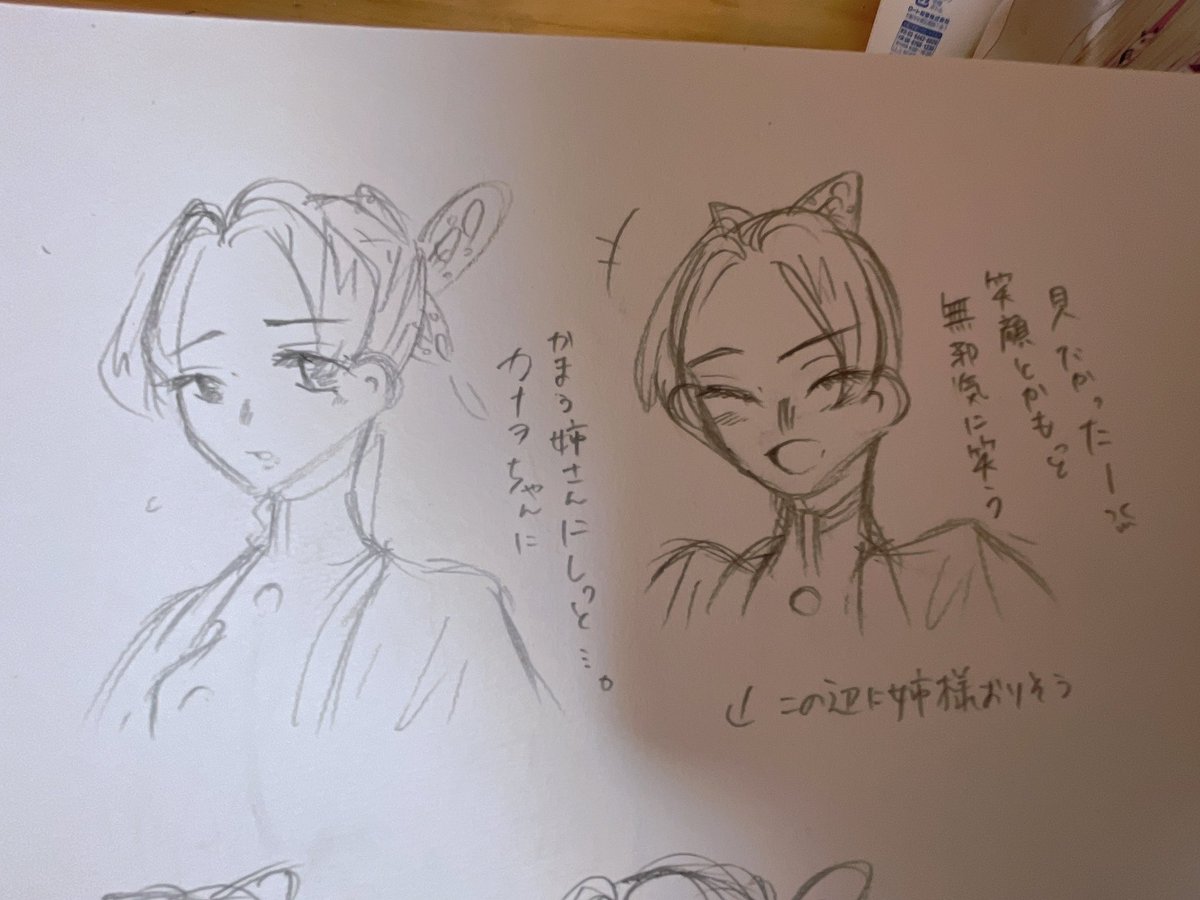 ロート製薬株式会社
無邪気に笑う
笑顔とかもっと
見たかったー
カナヲちゃんに
かまう姉さんにしっと…。
↓この辺に姉様おりそう